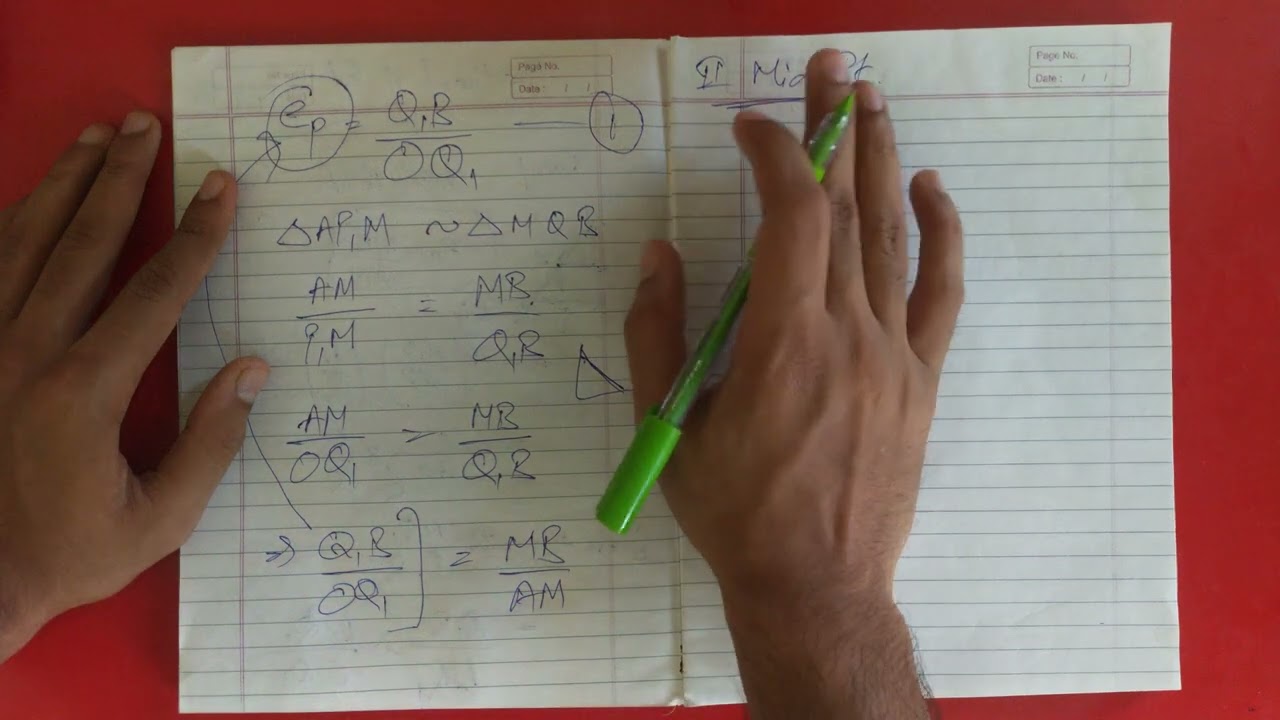 Page No.
Date : / /
e_p = Q₁B / OQ₁ — ①
△AP₁M ~ △MQB
AM / P₁M = MB / Q₁B
AM / OQ₁ = MB / Q₁B
⇒ Q₁B / OQ₁ = MB / AM
Page No.
Date : / /
II